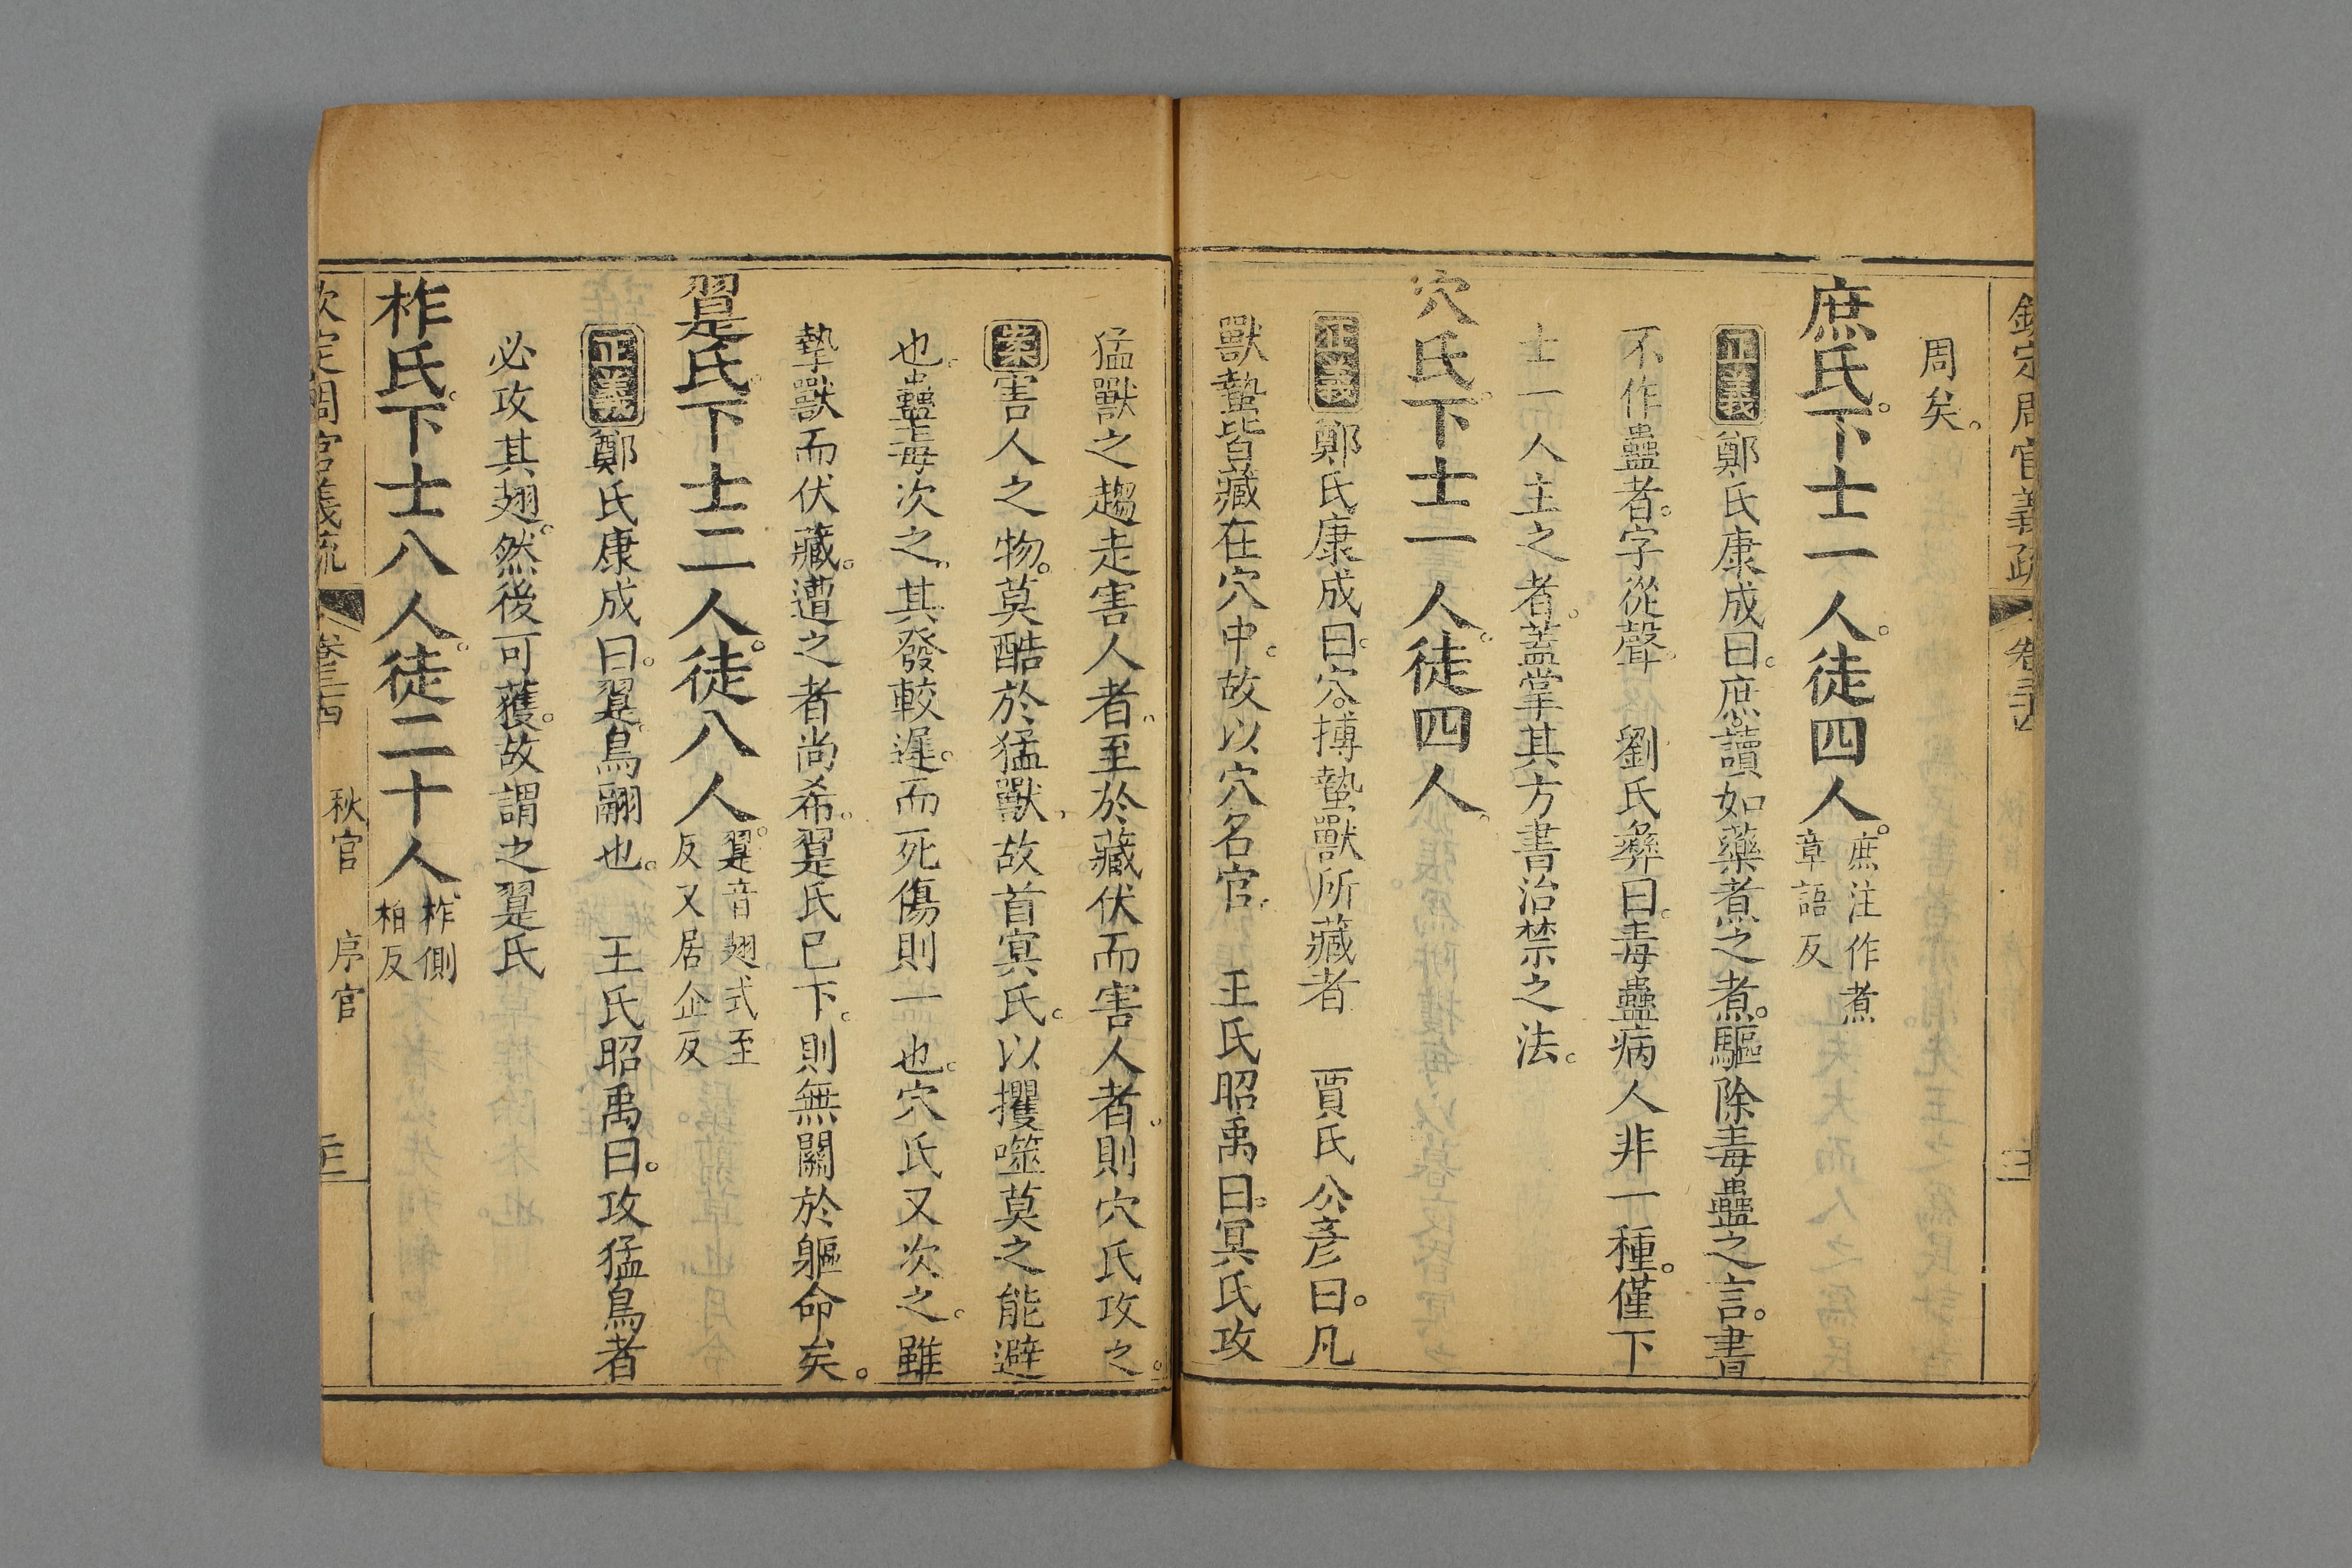 周矣。
庶氏。下士一人。徒四人。庶注作煮
章語反
正義鄭氏康成曰。庶讀如藥煮之煮。驅除毒蠱之言。書
不作蠱者。字從聲　劉氏彝曰。毒蠱病人非一種。僅下
士一人主之者。蓋掌其方書治禁之法。
穴氏。下士一人。徒四人。
正義鄭氏康成曰。穴。搏蟄獸所藏者　賈氏公彥曰。凡
獸蟄皆藏在穴中。故以穴名官。　王氏昭禹曰。冥氏攻
猛獸之趨走害人者。至於藏伏而害人者。則穴氏攻之。
案害人之物。莫酷於猛獸。故首冥氏。以攫噬莫之能避
也。蠱毒次之。其發較遲。而死傷則一也。穴氏又次之。雖
摯獸而伏藏。遭之者尚希。翨氏已下。則無關於軀命矣。
翨氏。下士二人。徒八人。翨音翅式至
反又居企反
正義鄭氏康成曰。翨。鳥翮也。　王氏昭禹曰。攻猛鳥者
必攻其翅。然後可獲。故謂之翨氏
柞氏。下士八人。徒二十人。柞側
柏反
欽定周官義疏　卷三十四　秋官　序官